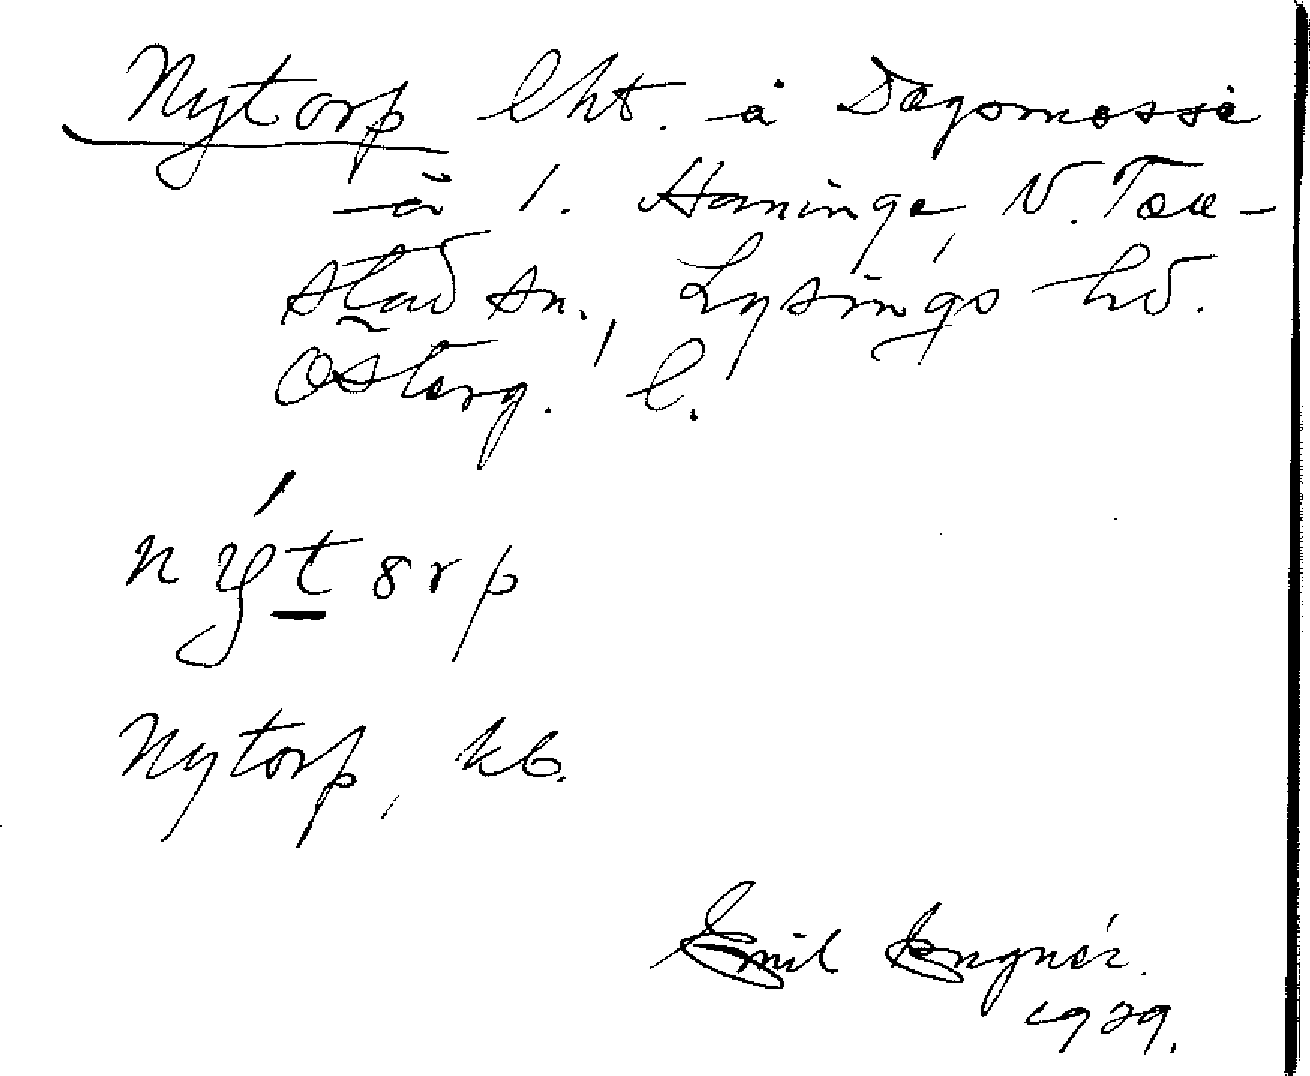 Nytorp lht. å Dagsmosse
å 1. Haninge, V. Tol-
stad sn., Lysings hd.
Österg. l.
nýtȣrp
Nytorp, kb.
Emil Engnér.
1929.